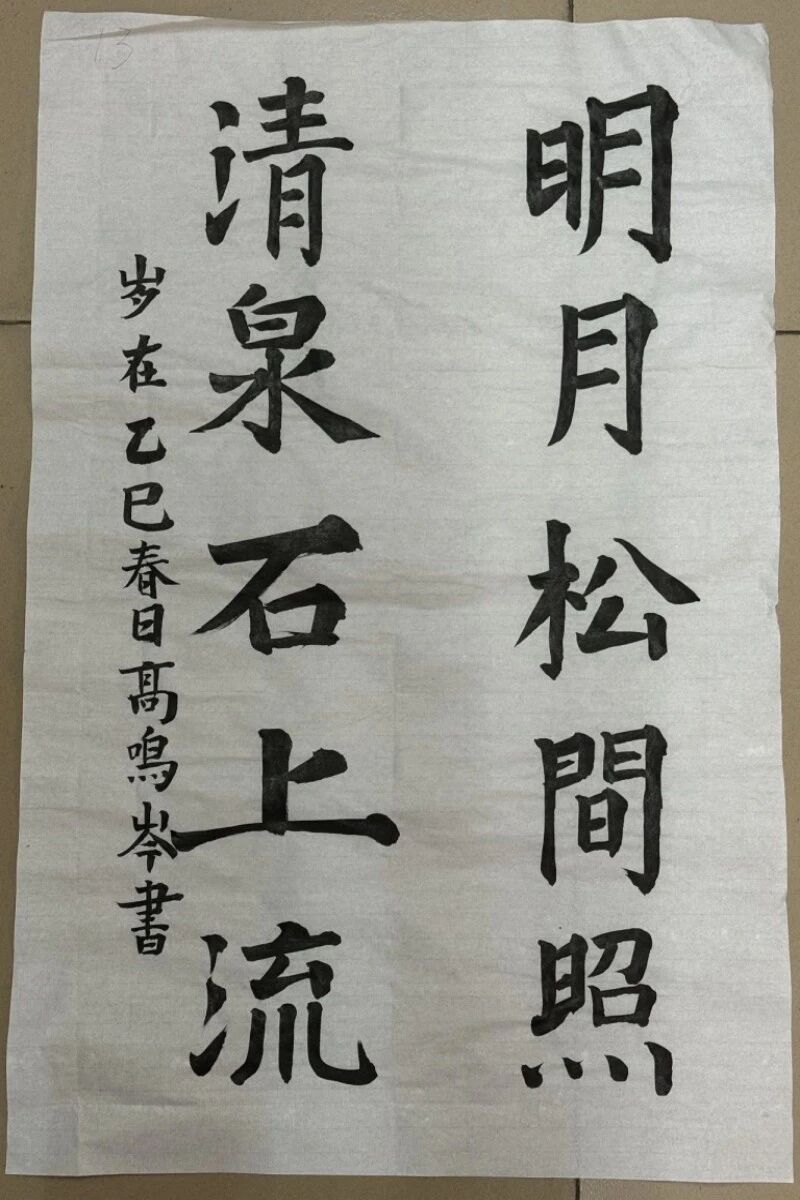 明月松間照
清泉石上流
岁在乙巳春日高鳴岑書
13